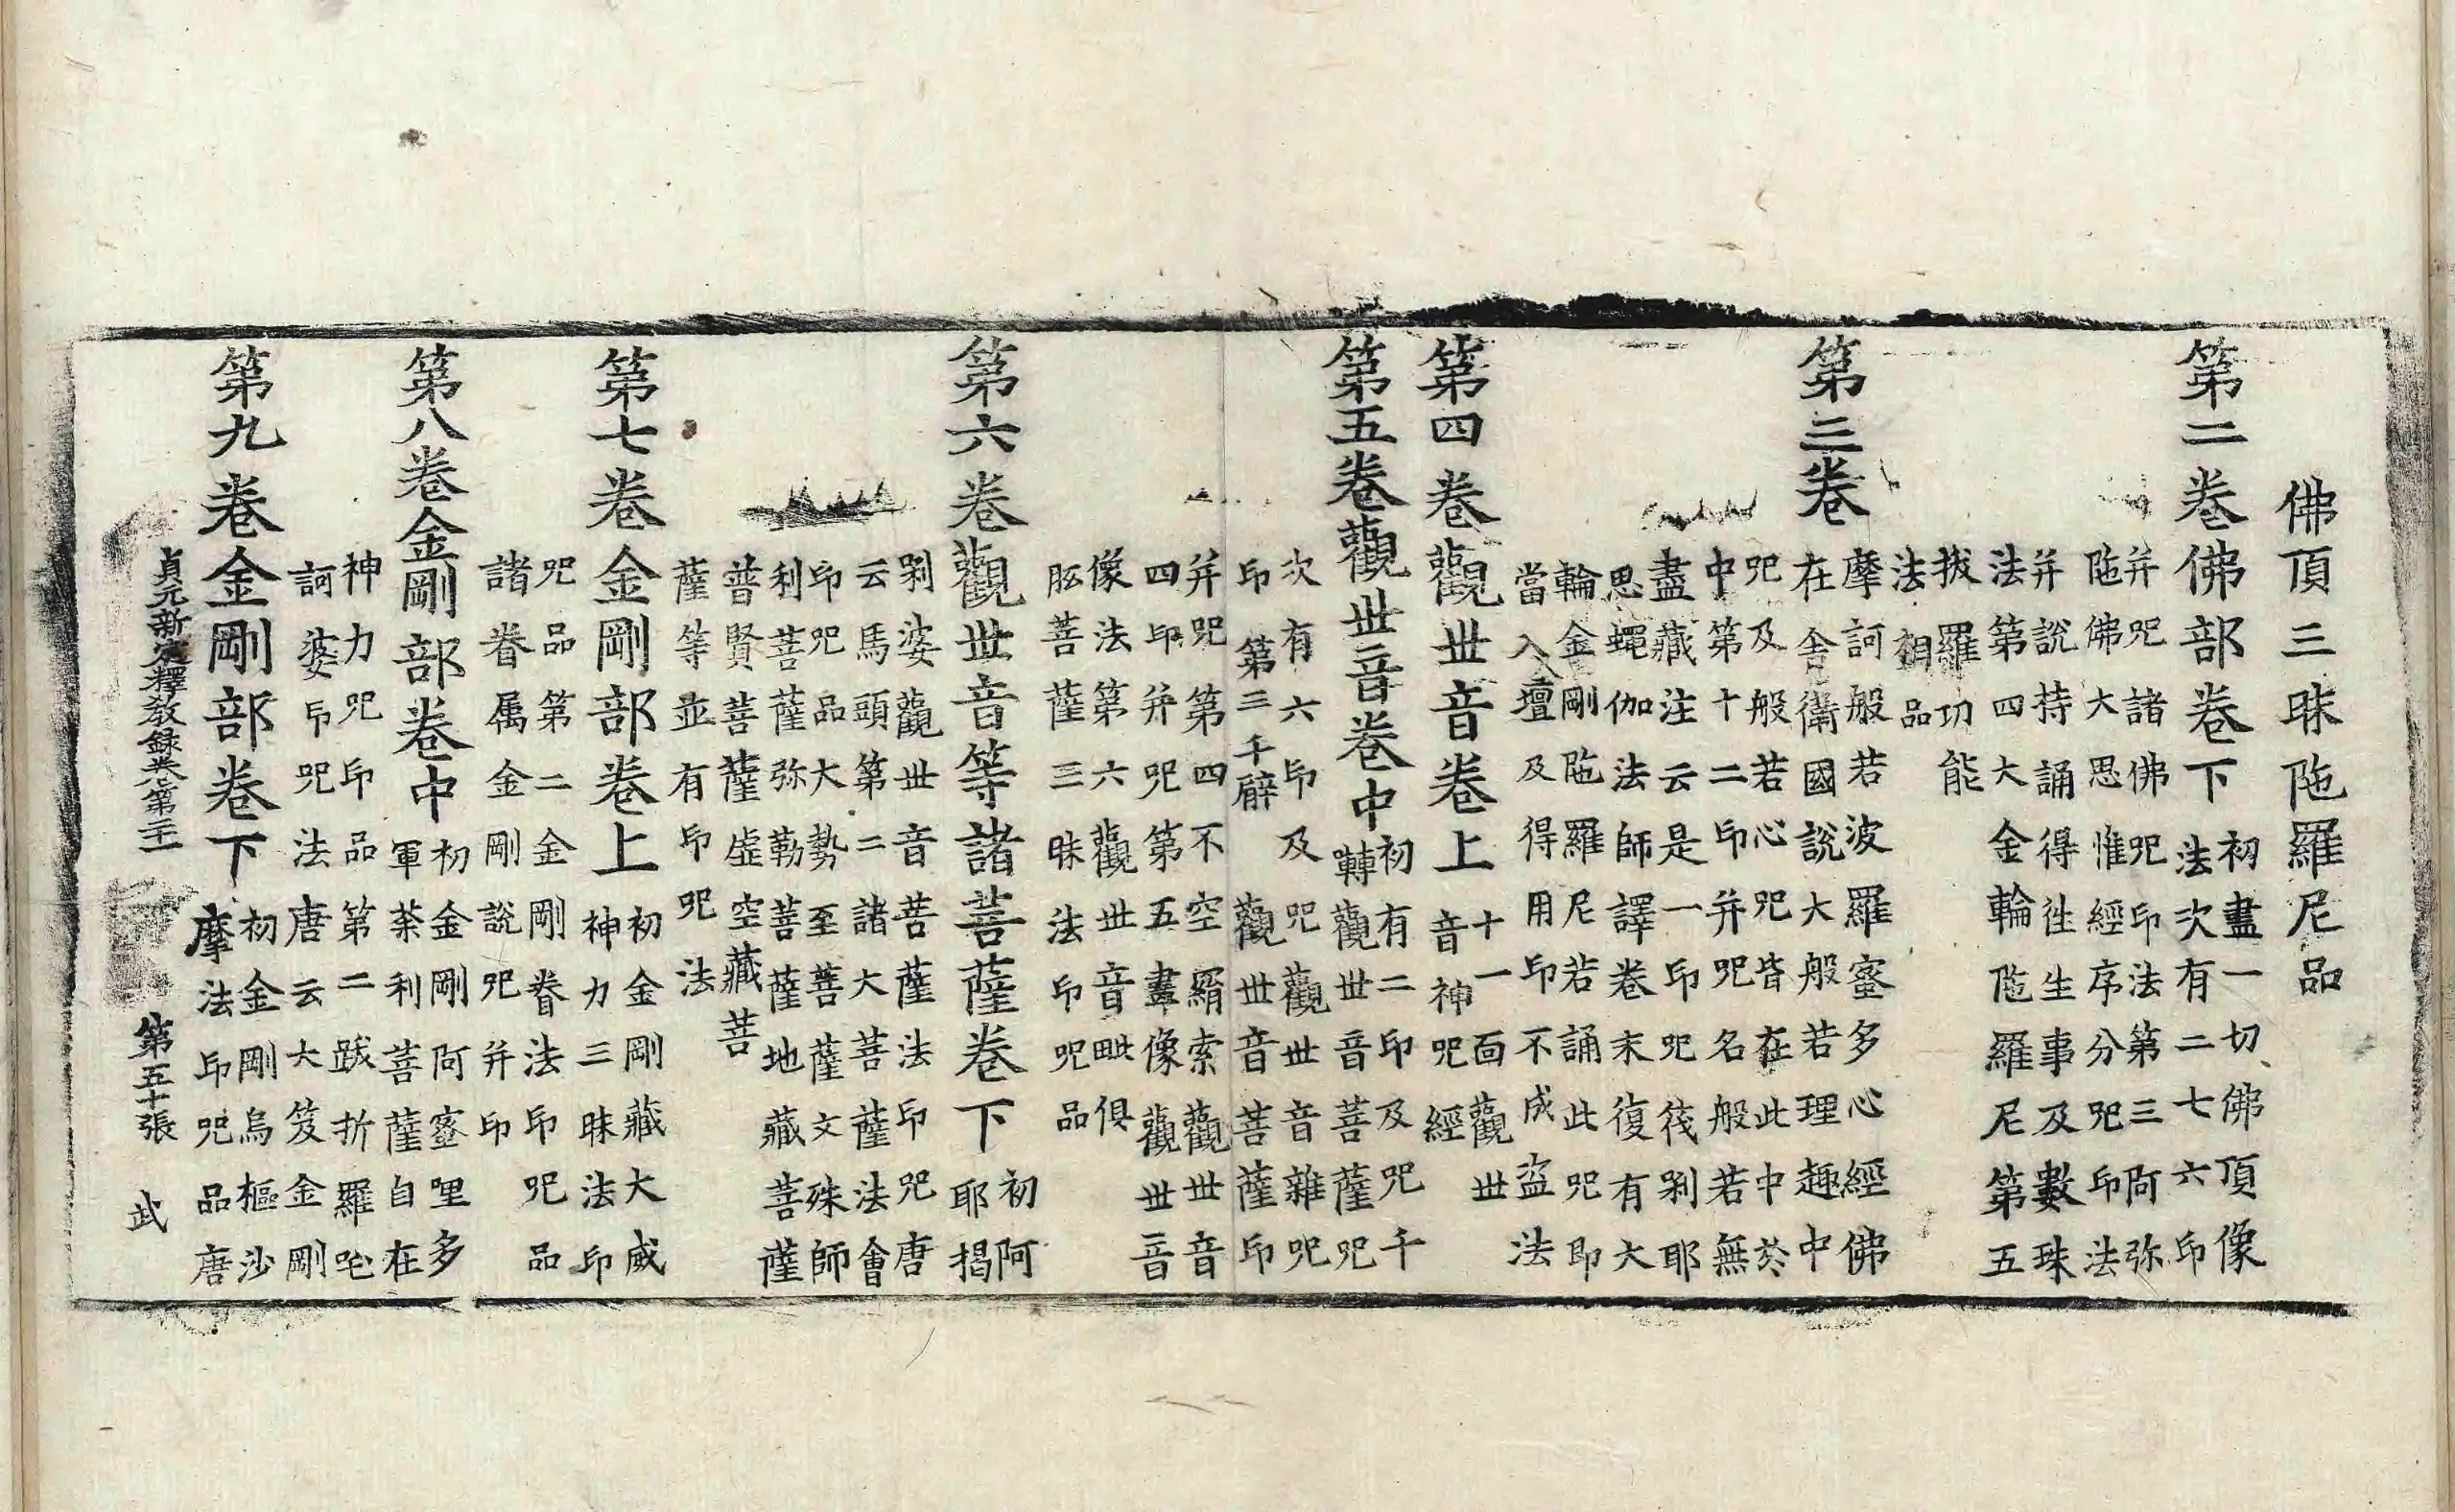 佛頂三昧陁羅尼品
第二卷佛部卷下
初畫一切佛頂像
法次有二七六印
并呪諸佛呪印法第三阿弥
陁佛大思惟經序分呪印法
并說持誦得往生事及數珠
法第四大金輪陁羅尼第五
拔羅功能
法相品
第三卷
摩訶般若波羅蜜多心經佛
在舍衛國說大般若理趣中
呪及般若心呪皆在此中於
中第十二印并呪名般若無
盡藏注云是一印呪筏剎耶
思蠅伽法師譯卷末復有大
輪金剛陁羅尼若誦此呪即
當入壇及得用印不成盗法
第四卷觀世音卷上
十一面觀世
音神呪經
第五卷觀世音卷中
初有二印及呪千
轉觀世音菩薩呪
次有六印及呪觀世音雜呪
印第三千臂觀世音菩薩印
并呪第四不空羂索觀世音
四印并呪第五畫像觀世音
像法第六觀世音毗俱
胝菩薩三昧法印呪品
第六卷觀世音等諸菩薩卷下
初阿
耶揭
剎婆觀世音菩薩法印呪唐
云馬頭第二諸大菩薩法會
印呪品大勢至菩薩文殊師
利菩薩弥勒菩薩地藏菩薩
普賢菩薩虛空藏菩
薩等並有印呪法
第七卷金剛部卷上
初金剛藏大威
神力三昧法印
呪品第二金剛眷法印呪品
諸眷属金剛說呪并印
第八卷金剛部卷中
初金剛阿蜜哩多
軍荼利菩薩自在
神力呪印品第二跋折羅吒
訶婆印呪法唐云大笈金剛
第九卷金剛部卷下
初金剛烏樞沙
摩法印呪品唐
貞元新定釋教録卷第二十一 第五十張 武